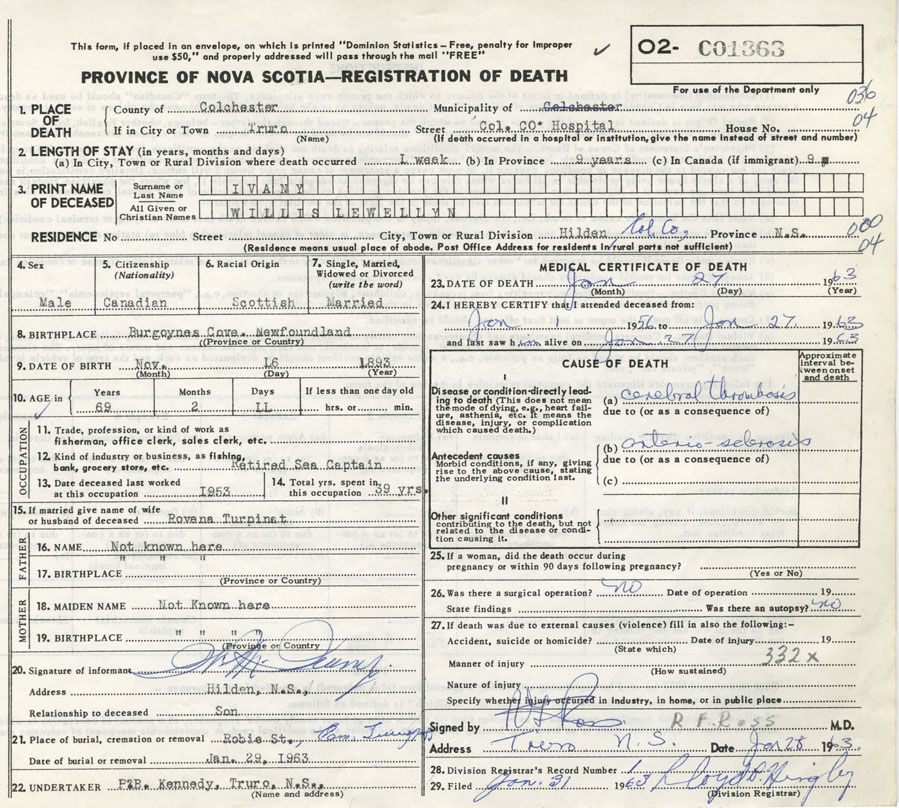 This form, if placed in an envelope, on which is printed "Dominion Statistics - Free, penalty for improper
use $50," and properly addressed will pass through the mail "FREE"
✓
O2- C01363
PROVINCE OF NOVA SCOTIA—REGISTRATION OF DEATH
For use of the Department only
1. PLACE OF DEATH County of Colchester Municipality of Colchester 036
If in City or Town Truro (Name) Street Col. CO. Hospital House No. 04
(If death occurred in a hospital or institution, give the name instead of street and number)
2. LENGTH OF STAY (in years, months and days)
(a) In City, Town or Rural Division where death occurred 1 week (b) In Province 9 years (c) In Canada (if immigrant) 9
3. PRINT NAME OF DECEASED Surname or Last Name IVANY
All Given or Christian Names WILLIS LEWELLYN
RESIDENCE No Street City, Town or Rural Division Hilden, Col Co, Province N.S. 04
(Residence means usual place of abode. Post Office Address for residents in rural parts not sufficient)
4. Sex Male
5. Citizenship (Nationality) Canadian
6. Racial Origin Scottish
7. Single, Married, Widowed or Divorced (write the word) Married
8. BIRTHPLACE Burgoynes Cowe. Newfoundland
(Province or Country)
9. DATE OF BIRTH Nov. 16 1893
(Month) (Day) (Year)
10. AGE in Years Months Days If less than one day old
✓ 69 2 11 hrs. or min.
OCCUPATION
11. Trade, profession, or kind of work as
fisherman, office clerk, sales clerk, etc.
12. Kind of industry or business, as fishing,
bank, grocery store, etc. Retired Sea Captain
13. Date deceased last worked at this occupation 1953
14. Total yrs. spent in this occupation 39 yrs.
15. If married give name of wife
or husband of deceased Rovena Turpinat
FATHER
16. NAME Not known here
17. BIRTHPLACE " " "
(Province or Country)
MOTHER
18. MAIDEN NAME Not Known here
19. BIRTHPLACE " " "
(Province or Country
20. Signature of informant
Address Hilden, N.S.,
Relationship to deceased Son
21. Place of burial, cremation or removal Robie St., Cem.
Date of burial or removal Jan. 29, 1963
22. UNDERTAKER P.B. Kennedy, Truro, N.S.,
(Name and address)
MEDICAL CERTIFICATE OF DEATH
23. DATE OF DEATH Jan 27 1963
(Month) (Day) (Year)
24. I HEREBY CERTIFY that I attended deceased from:
Jan 1 1956 to Jan 27 1963
and last saw him alive on Jan 27 1963
CAUSE OF DEATH
Approximate interval between onset and death
I
Disease or condition directly leading to death (This does not mean the mode of dying, e.g., heart failure, asthenia, etc. It means the disease, injury, or complication which caused death.)
(a) cerebral thrombosis
due to (or as a consequence of)
Antecedent causes
Morbid conditions, if any, giving rise to the above cause, stating the underlying condition last.
(b) arterio-sclerosis
due to (or as a consequence of)
(c)
II
Other significant conditions
contributing to the death, but not related to the disease or condition causing it.
25. If a woman, did the death occur during
pregnancy or within 90 days following pregnancy?
(Yes or No)
26. Was there a surgical operation? no Date of operation 19
State findings Was there an autopsy? no
27. If death was due to external causes (violence) fill in also the following:-
Accident, suicide or homicide? Date of injury 19
(State which)
Manner of injury 332x
(How sustained)
Nature of injury
Specify whether injury occurred in industry, in home, or in public place
Signed by R F Ross M.D.
Address Truro N.S. Date Jan 28 1963
28. Division Registrar's Record Number
29. Filed Jan. 31 1963
(Division Registrar)